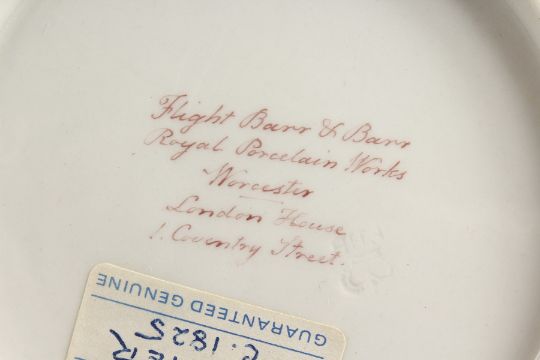 Flight Barr & Barr
Royal Porcelain Works
Worcester
London House
1. Coventry Street.
GUARANTEED GENUINE
C. 1825